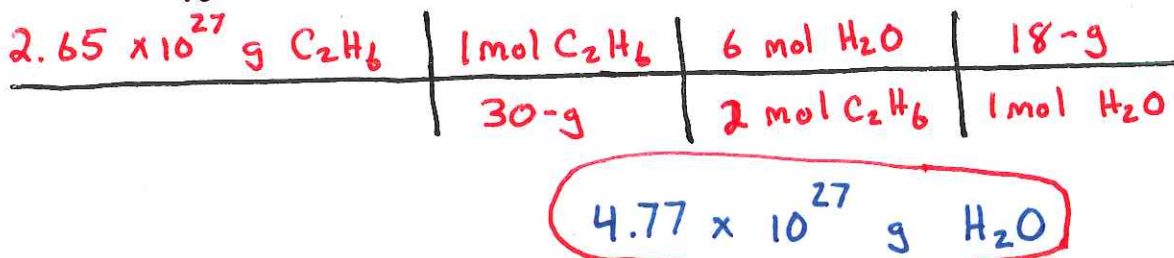 2.65 x10^27 g C₂H₆ | 1mol C₂H₆ | 6 mol H₂O | 18-g
30-g | 2 mol C₂H₆ | 1mol H₂O
4.77 x 10^27 g H₂O